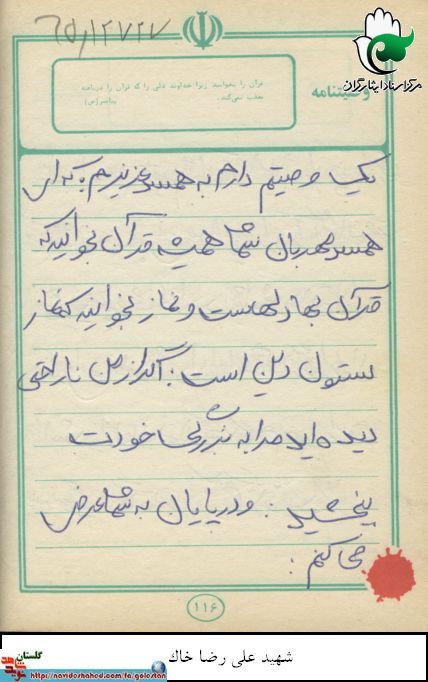 ۶۵/۱۲/۲۷
مرکز اسناد ایثارگران
وصیتنامه
قرآن را بخوانید زیرا خداوند دلی را که قرآن را دریافته
عذب نمی‌کند. پیامبر(ص)
یک وصیتم دارم به همسر عزیزم که ای
همسر مهربان شما همیشه قرآن بخوانید که
قرآن بهار دلهاست و نماز بخوانید که نماز
ستون دین است. اگر از من ناراحتی
دیده‌اید مرا به بزرگی خودت
ببخشید. و در پایان به شما عرض
می کنم:
۱۱۶
شهید علی رضا خاك
گلستان
http://navideshahed.com/fa.golestan